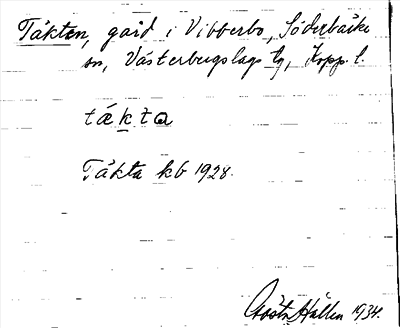 Täkten, gård i Vibberbo, Söderbärke
sn, Västerbergslags tg, Kopp. l.
täkta
Täkta kb 1928.
Gösta Hallén 1934.